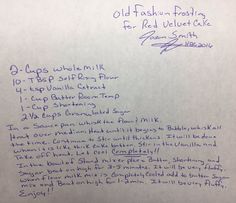 old fashion frosting
for Red Velvet Cake
Jason Smith
2 - Cups whole milk
10 - TBsp Self Rising Flour
4 - tsp Vanilla Extract
1 - Cup Butter Room Temp
1 - Cup Shortening
2 1/2 Cups Granulated Sugar
In a Sauce pan whisk the flour & milk.
Put over medium Heat until it begins to Bubble, whisk all
the time. Continue to Stir until thickens. It will be done
when it's like thick cake batter. Stir in the Vanilla and
Take off heat, let cool Completely!!
In the bowl of Stand mixer place Butter, shortening and
Sugar beat on high for 3-5 minutes. It will be very fluffy.
when flour milk mix is Completely Cooled add to butter Sugar
mix and Beat on high for 1-2 min. It will be very fluffy,
Enjoy!!